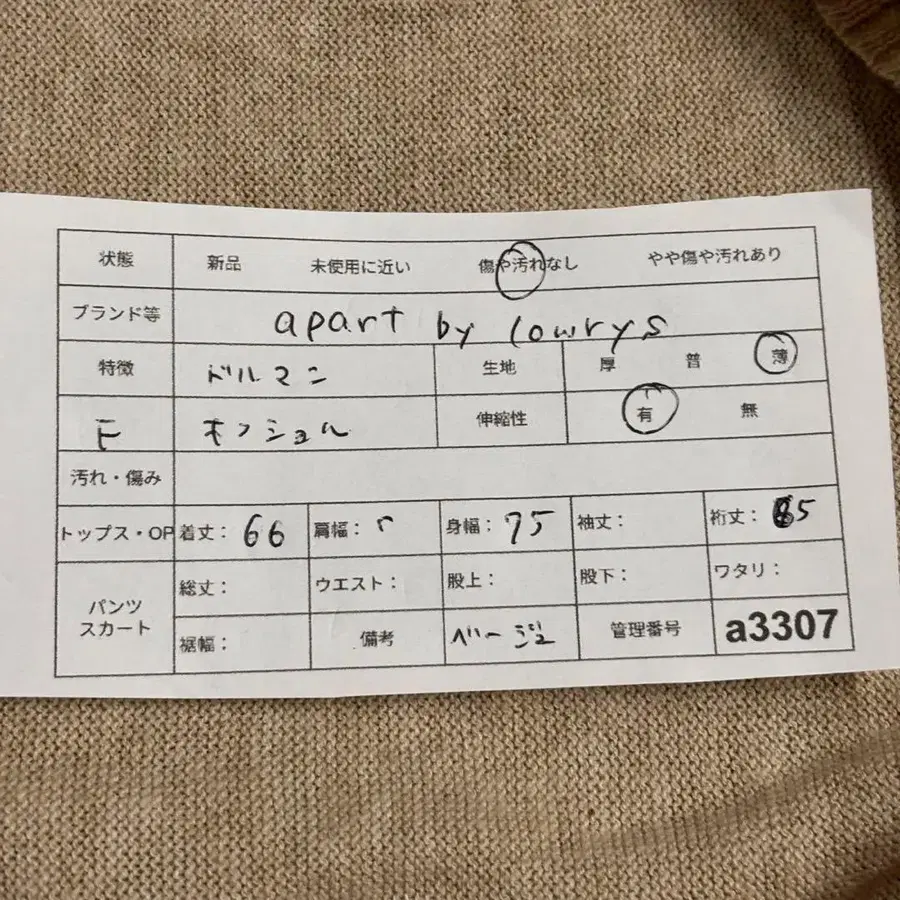 状態 新品 未使用に近い 傷や汚れなし やや傷や汚れあり
ブランド等 apart by lowrys
特徴 ドルマン 生地 厚 普 薄
F オフショル 伸縮性 有 無
汚れ・傷み
トップス・OP 着丈: 66 肩幅: 身幅: 75 袖丈: 裄丈: 65
パンツ スカート 総丈: ウエスト: 股上: 股下: ワタリ:
裾幅: 備考 ベージュ 管理番号 a3307